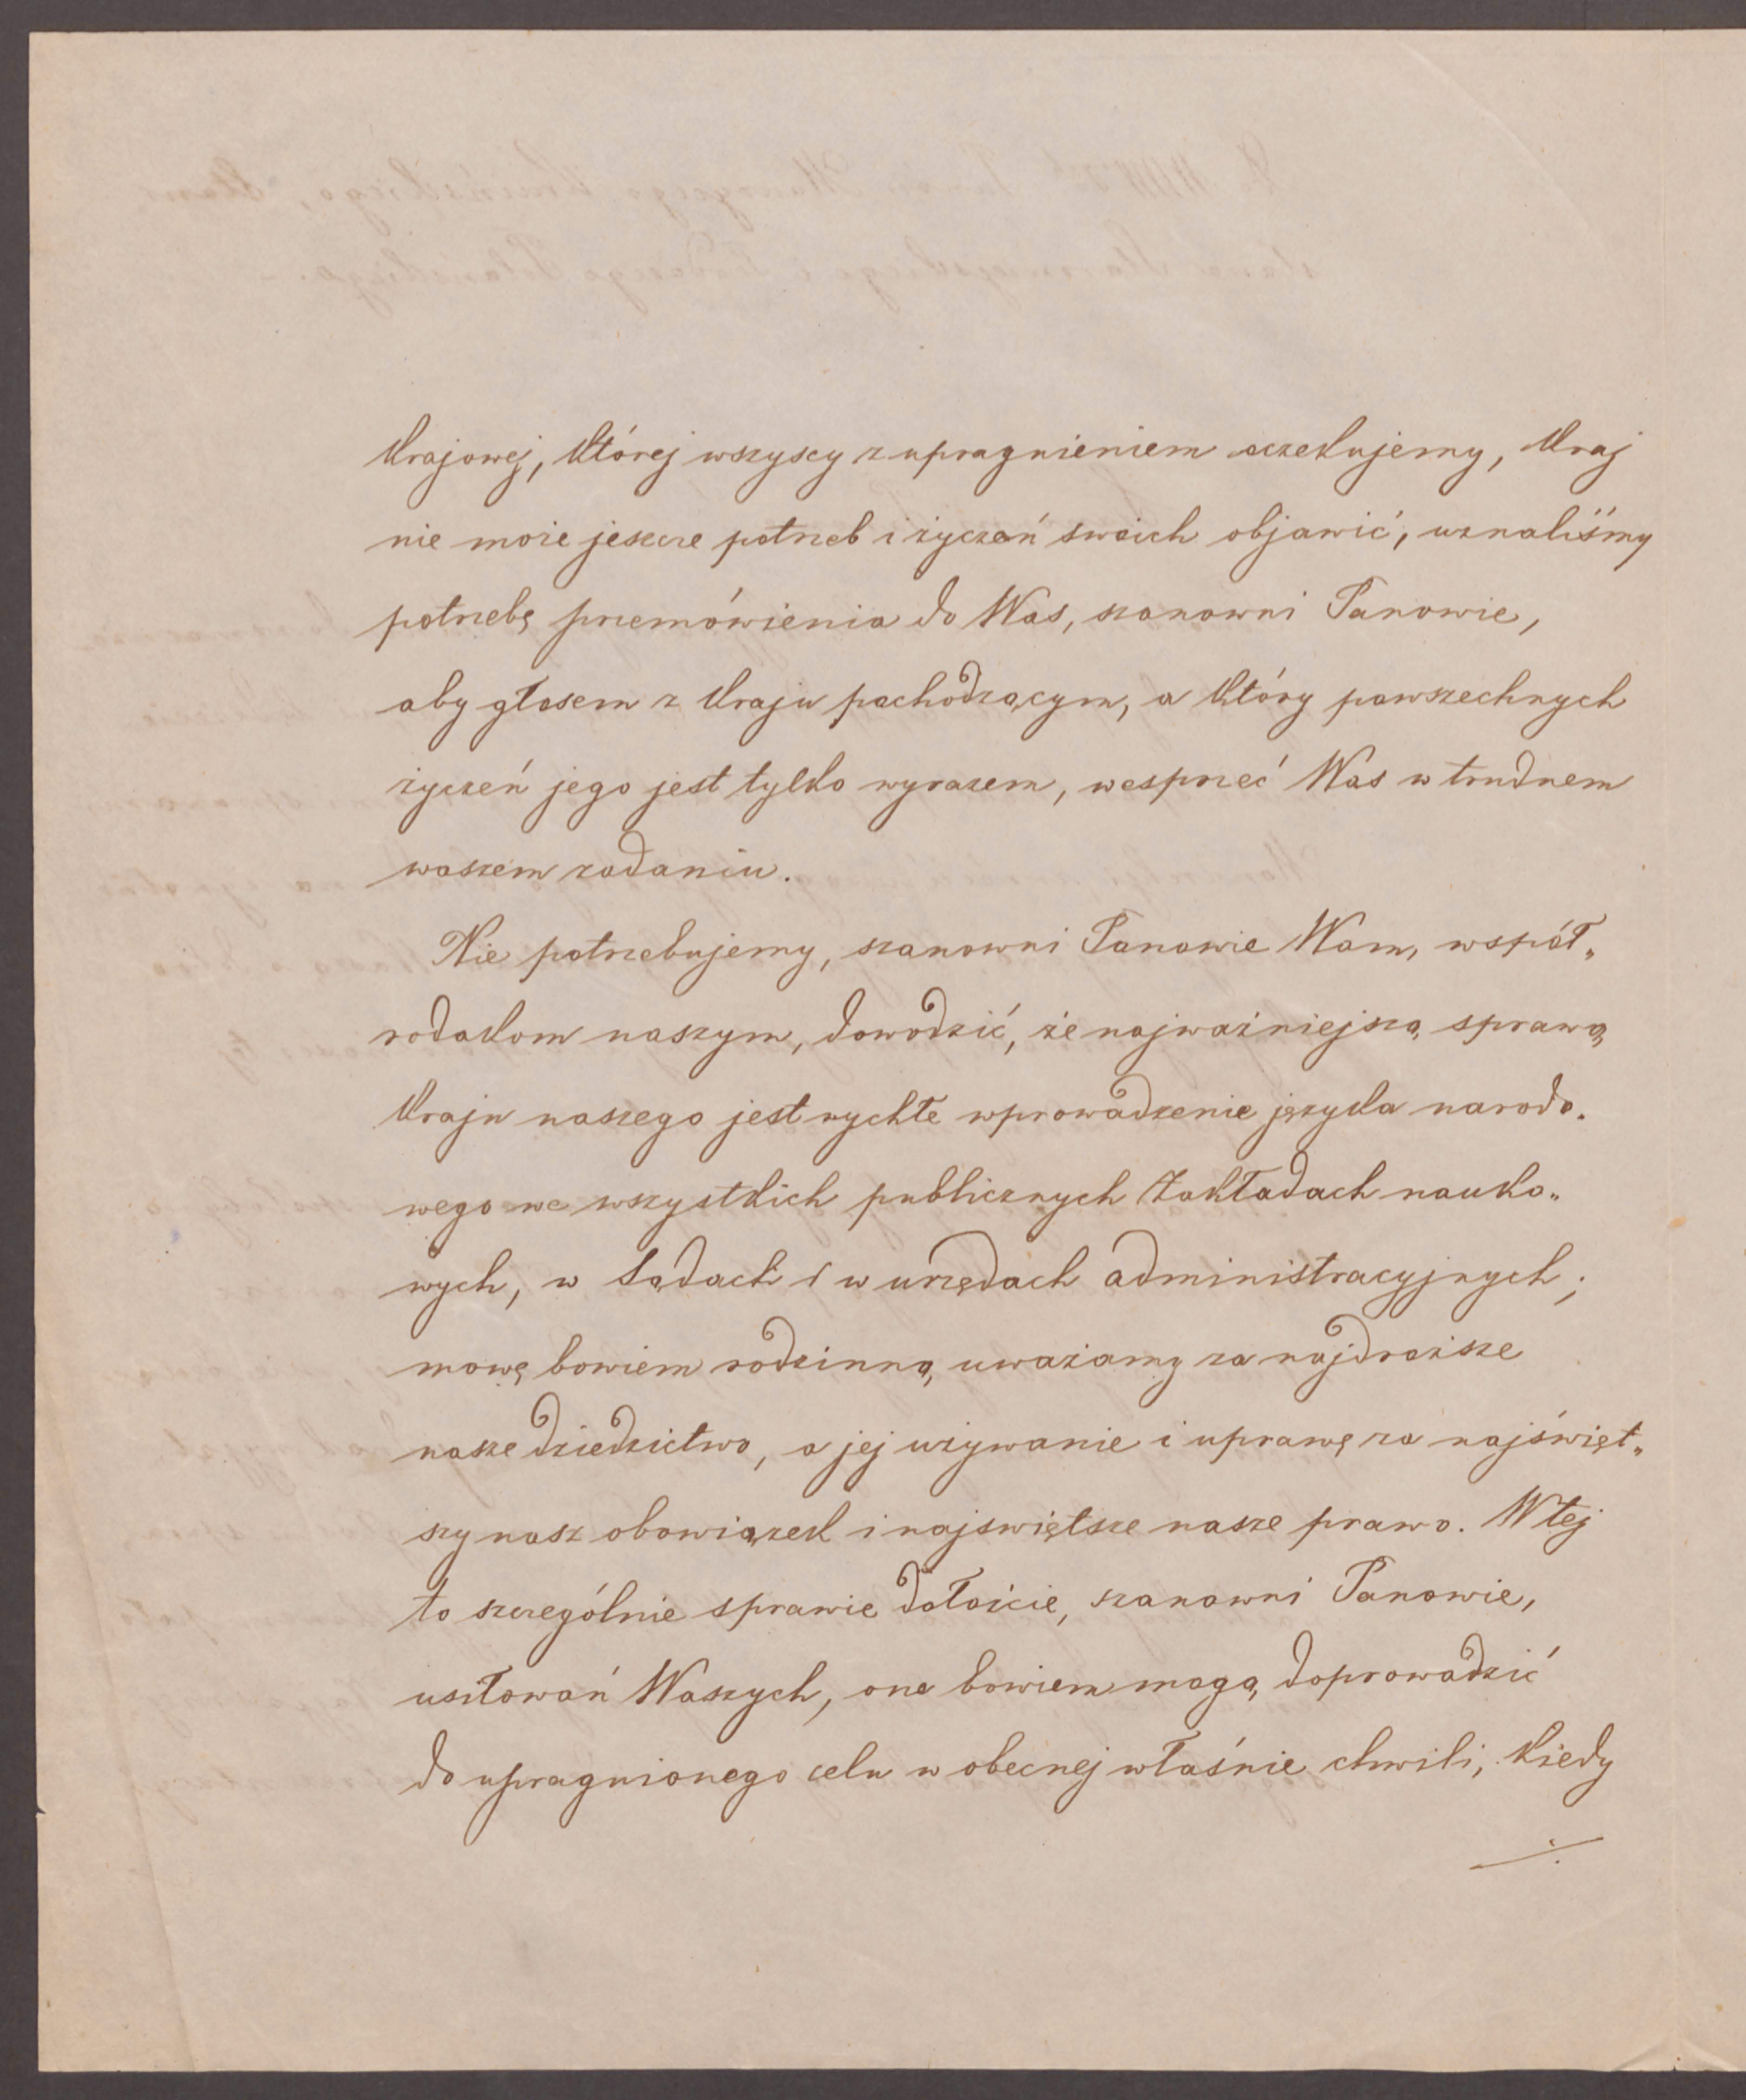 krajowej, której wszyscy z upragnieniem oczekujemy, kraj
nie może jeszcze potrzeb i życzeń swoich objawić, uznaliśmy
potrzebę przemówienia do Was, szanowni Panowie,
aby głosem z kraju pochodzącym, a który powszechnych
życzeń jego jest tylko wyrazem, wesprzeć Was w trudnem
waszem zadaniu.
Nie potrzebujemy, szanowni Panowie Wam, współ„
rodakom naszym, dowodzić, że najważniejszą sprawą
kraju naszego jest rychłe wprowadzenie języka narodo„
wego we wszystkich publicznych Zakładach nauko„
wych, w Sądach i w urzędach administracyjnych;
mowę bowiem rodzinną uważamy za najdroższe
nasze dziedzictwo, a jej używanie i uprawę za najświęt„
szy nasz obowiązek i najswiętsze nasze prawo. W tej
to szczególnie sprawie dołóżcie, szanowni Panowie,
usiłowań Waszych, one bowiem mogą doprowadzić
do upragnionego celu w obecnej właśnie chwili, kiedy